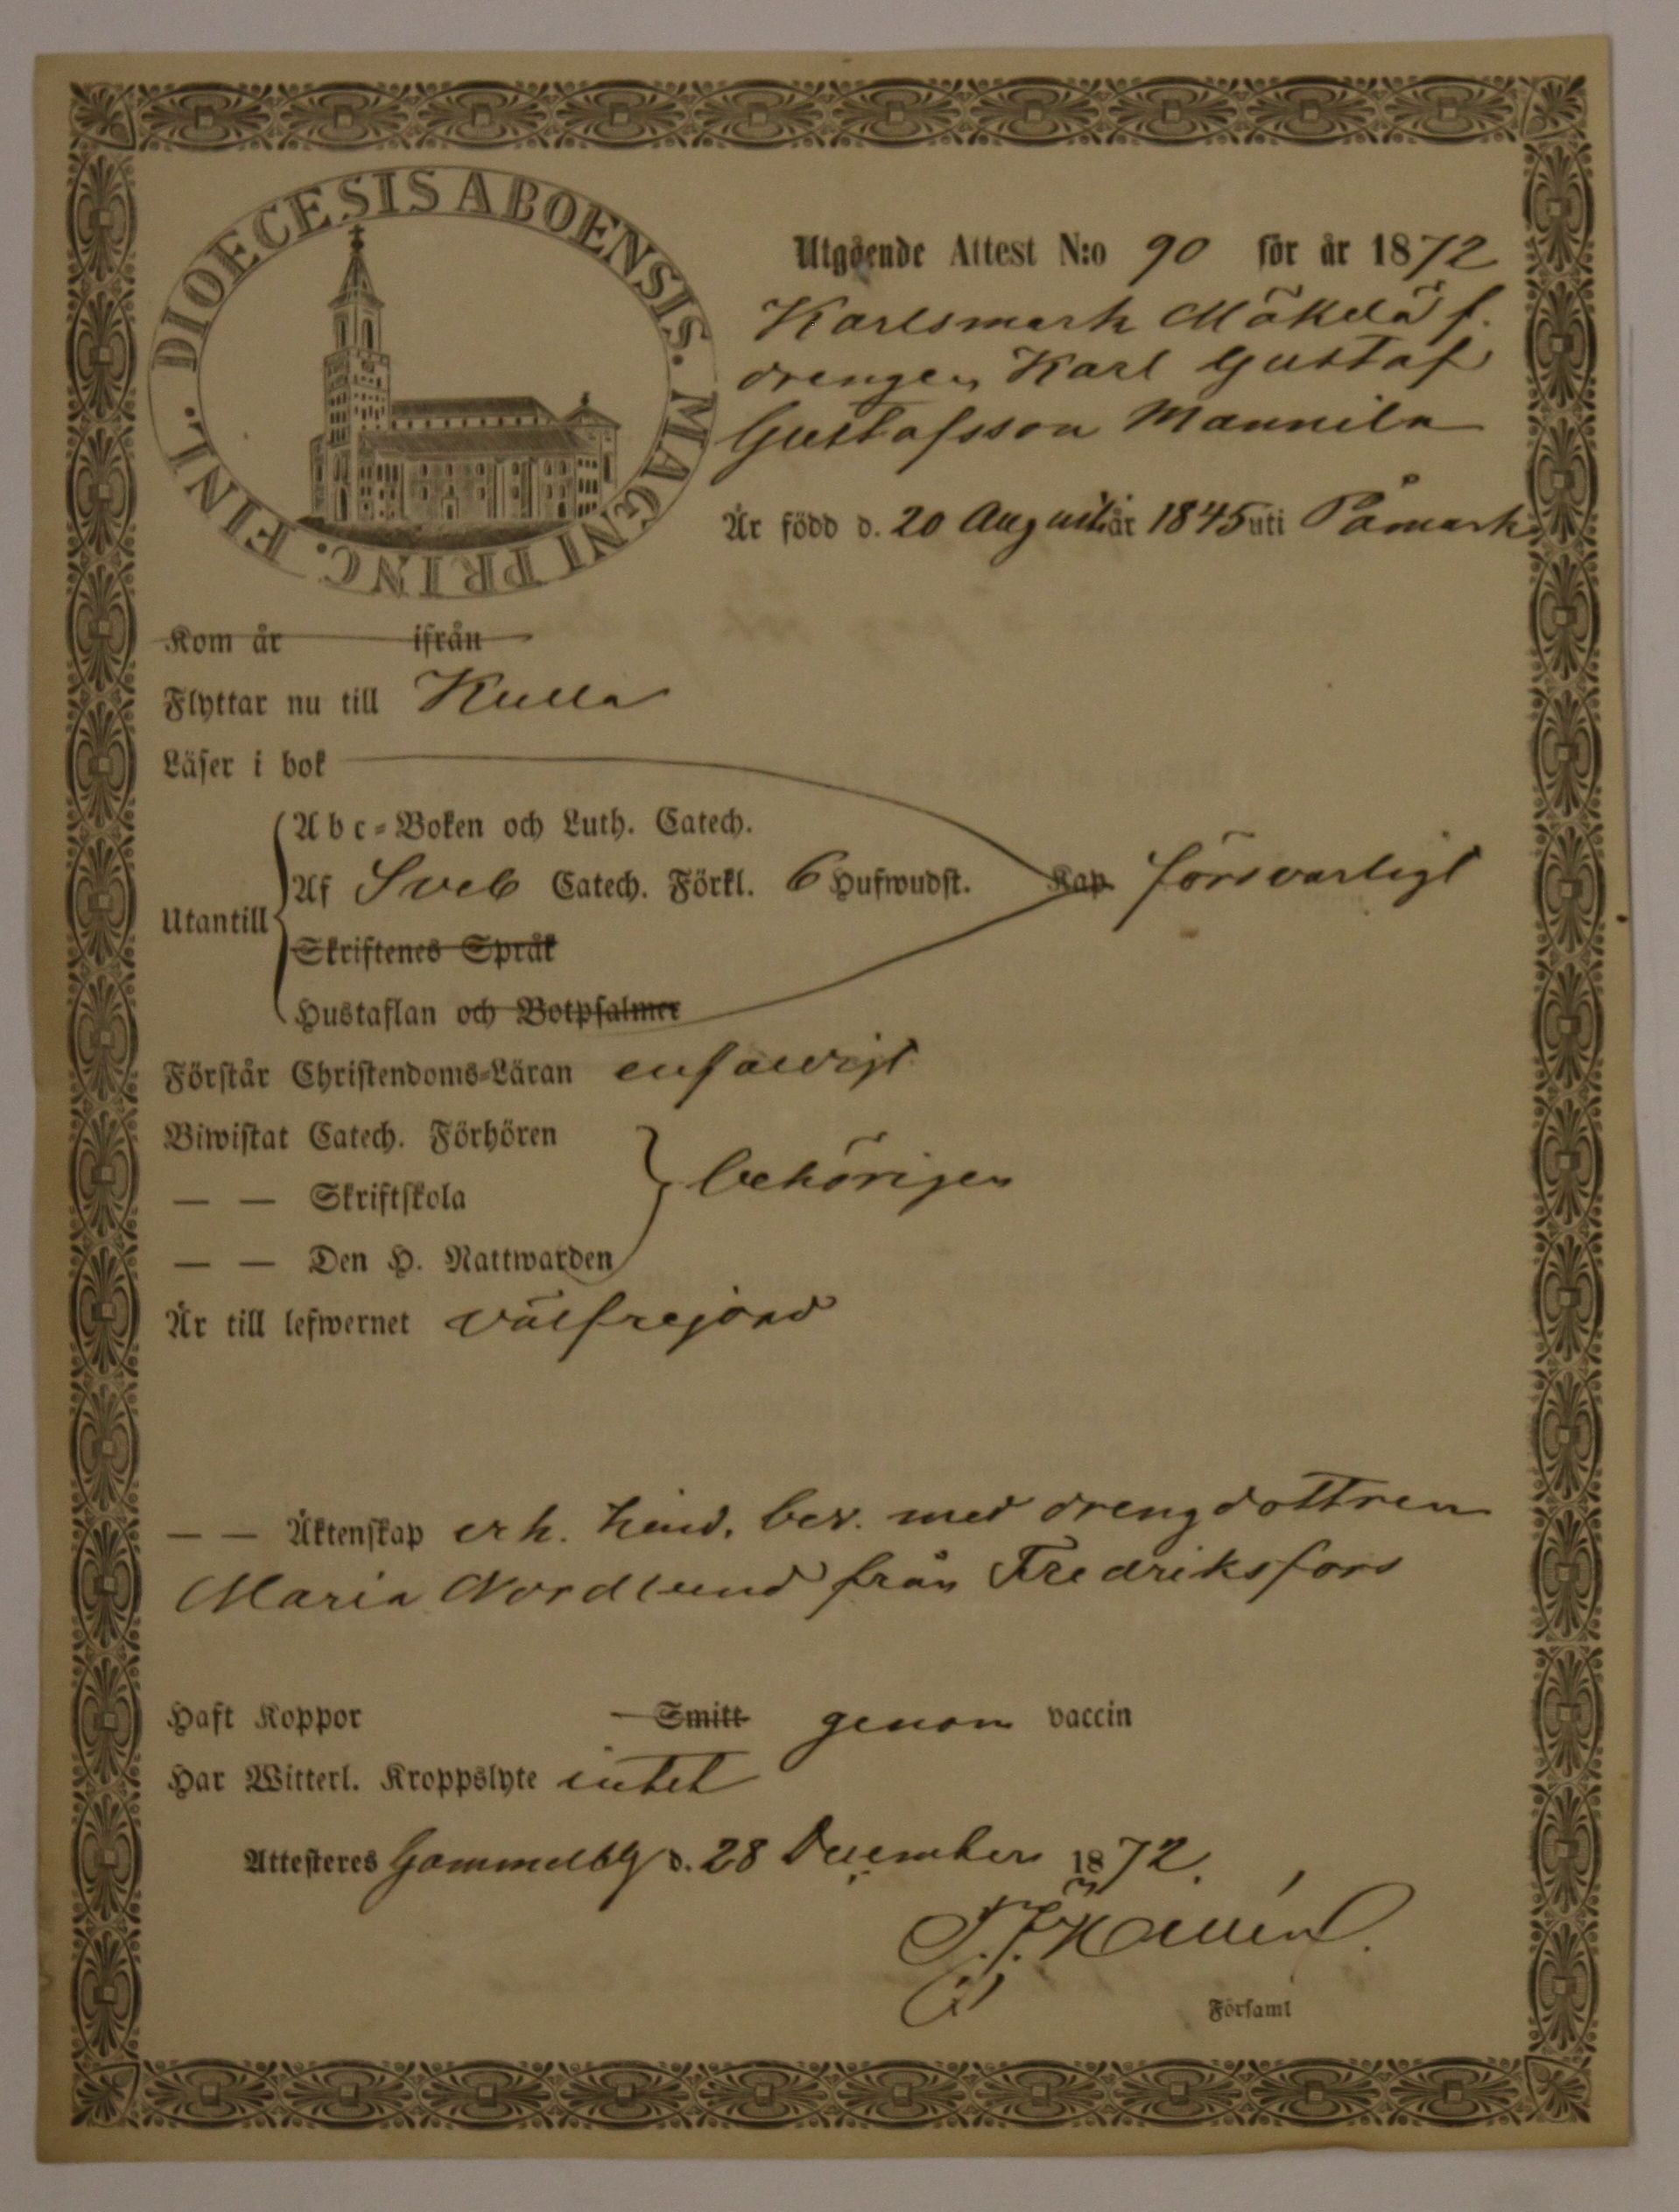 DIOECESIS ABOENSIS. MAGNI PRINC. FINL.
Utgående Attest N:o 90 för år 1872
Karlsmark Mäkelä f.
drengen Karl Gustaf
Gustafsson Mannila
Är född d. 20 Augusti år 1845 uti Påmark
Kom år ifrån
Flyttar nu till Kulla
Läser i bok
Abc-Boken och Luth. Catech.
Utantill Af Sveb Catech. Förkl. 6 Hufwudst. Kap. försvarligt
Skriftenes Språk
Hustaflan och Botpsalmer
Förstår Christendoms-Läran enfaldigt
Biwistat Catech. Förhören
— — Skriftskola behörigen
— — Den H. Nattwarden
Är till lefwernet välfrejdad
— — Äktenskap erh. hind. bev. med drengdottren
Maria Nordlund från Fredriksfors
Haft Koppor Smitt genom vaccin
Har Witterl. Kroppslyte intet
Attesteres Gammelby d. 28 December 1872.
Församl